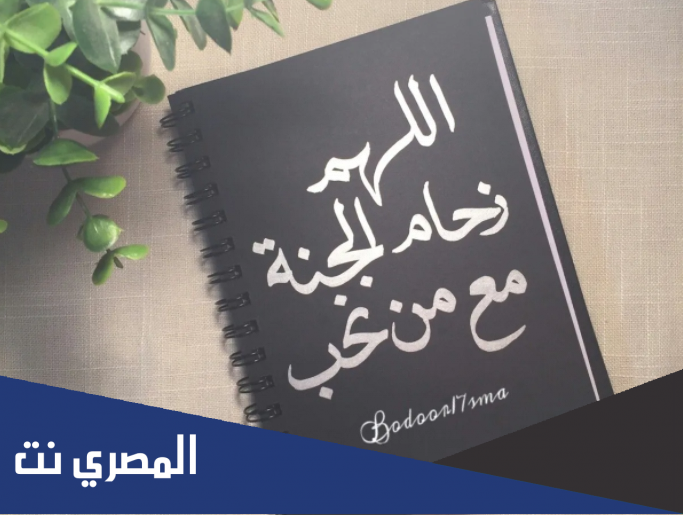 اللهم
زحام الجنة
مع من نحب
Bodoor17sma
المصري نت